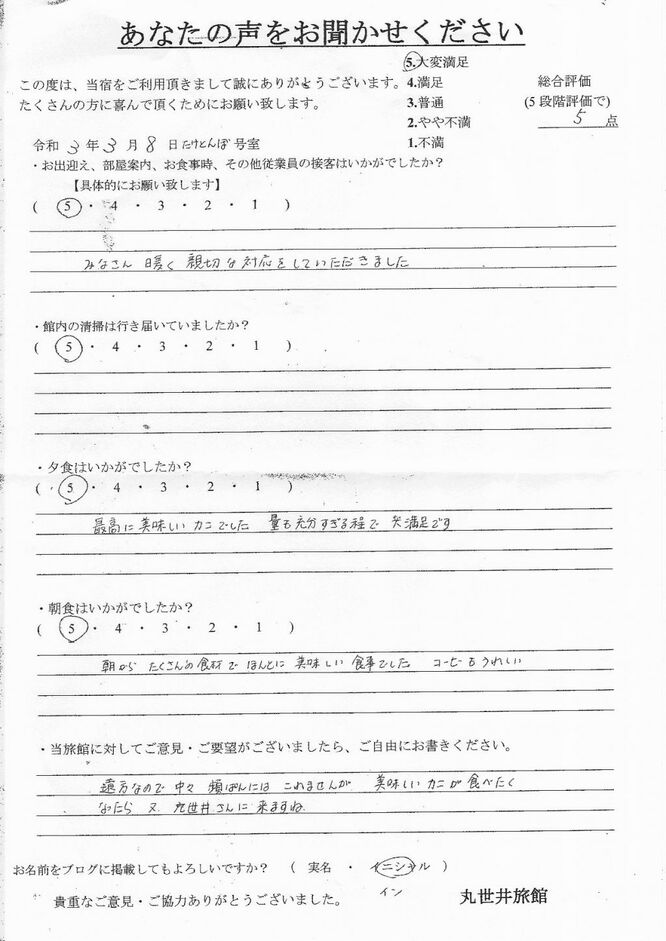 あなたの声をお聞かせください
5.大変満足
この度は、当宿をご利用頂きまして誠にありがとうございます。 4.満足 総合評価
たくさんの方に喜んで頂くためにお願い致します。 3.普通 (5段階評価で)
2.やや不満 5 点
令和 3 年 3 月 8 日 たけとんぼ 号室 1.不満
・お出迎え、部屋案内、お食事時、その他従業員の接客はいかがでしたか?
【具体的にお願い致します】
( 5 ・ 4 ・ 3 ・ 2 ・ 1 )
みなさん 暖く 親切な対応をしていただきました
・館内の清掃は行き届いていましたか?
( 5 ・ 4 ・ 3 ・ 2 ・ 1 )
・夕食はいかがでしたか?
( 5 ・ 4 ・ 3 ・ 2 ・ 1 )
最高に美味しいカニでした 量も充分すぎる程で 大満足です
・朝食はいかがでしたか?
( 5 ・ 4 ・ 3 ・ 2 ・ 1 )
朝から たくさんの食材で ほんとに 美味しい 食事でした コーヒーもうれしい
・当旅館に対してご意見・ご要望がございましたら、ご自由にお書きください。
遠方なので中々 頻ぱんには これませんが 美味しいカニが食べたく
なったら 又 丸世井さんに来ますね
お名前をブログに掲載してもよろしいですか? ( 実名 ・ イニシャル )
イン
貴重なご意見・ご協力ありがとうございました。 丸世井旅館